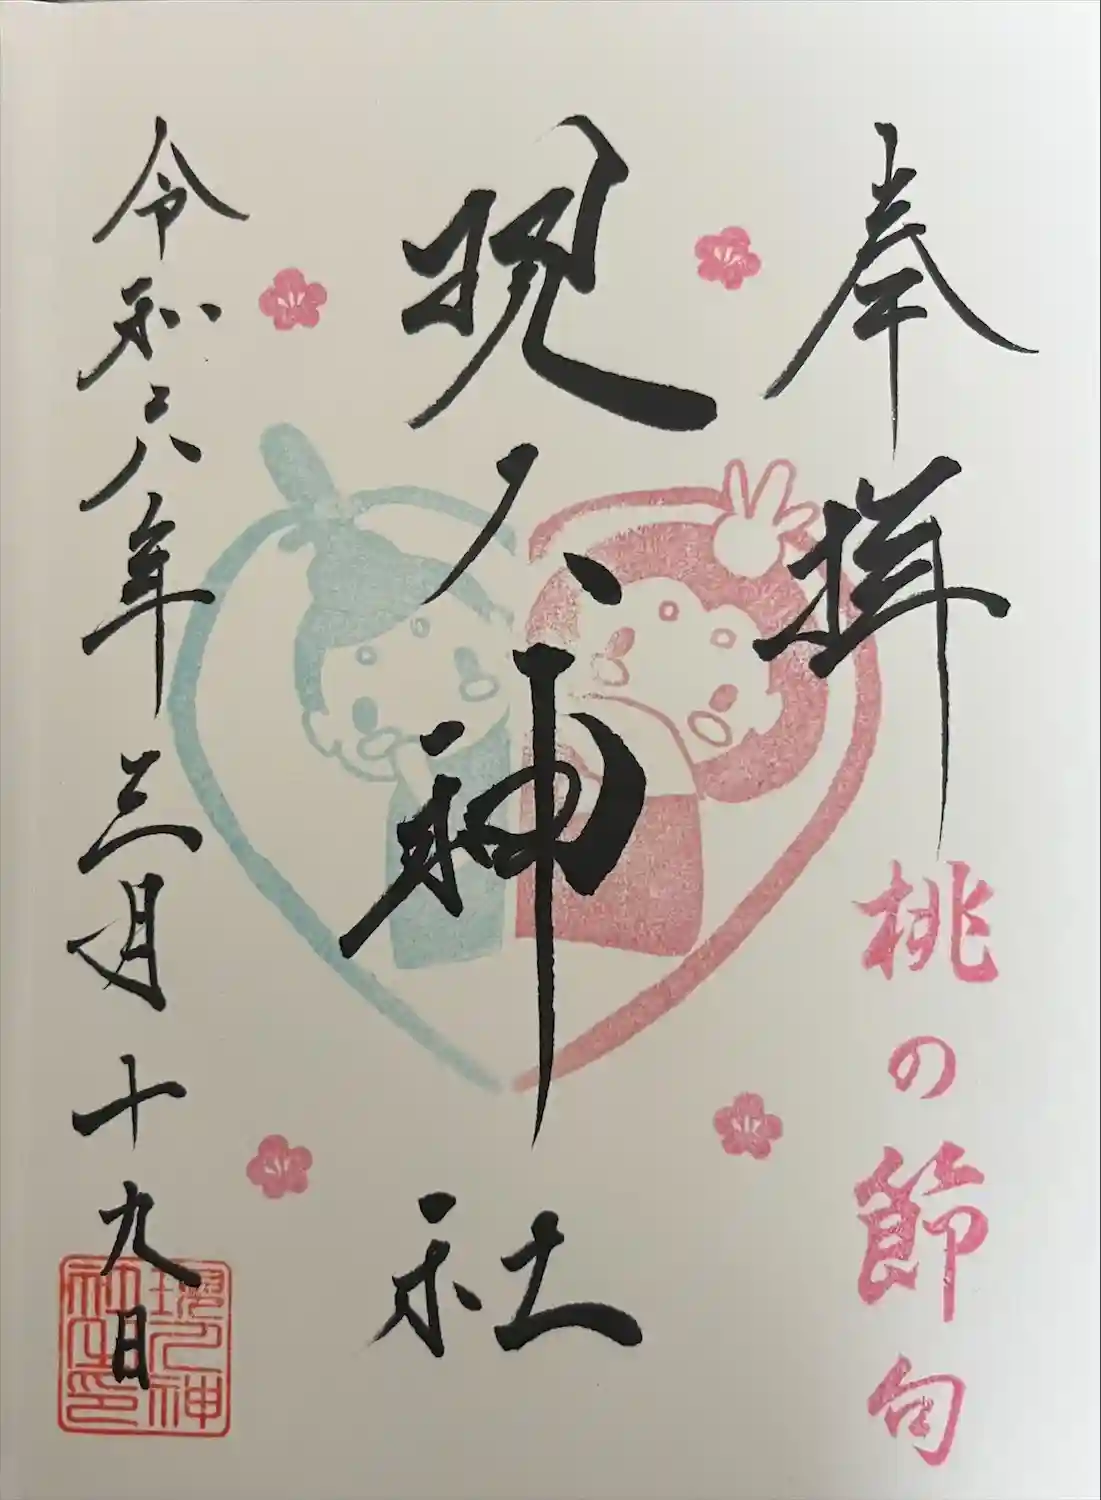 奉拝
桃の節句
現人神社
令和六年三月十九日
現人神
社之印